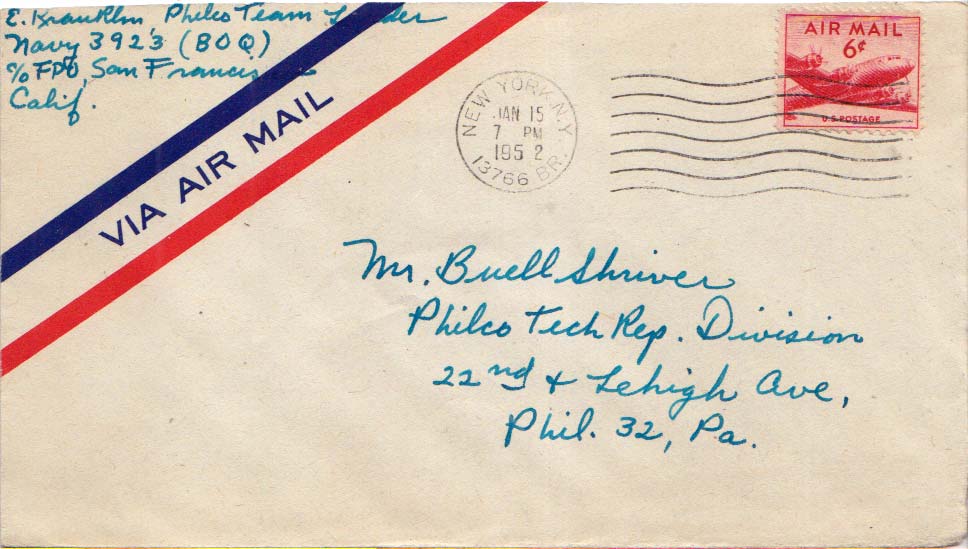 E. Kranklin Philco Team Leader
Navy 3923 (BOQ)
c/o FPO, San Francisco
Calif.
VIA AIR MAIL
NEW YORK, N.Y.
JAN 15
7 PM
1952
13766 BR.
AIR MAIL
6¢
U.S. POSTAGE
Mr. Buell Shriver
Philco Tech Rep. Division
22nd & Lehigh Ave,
Phil. 32, Pa.